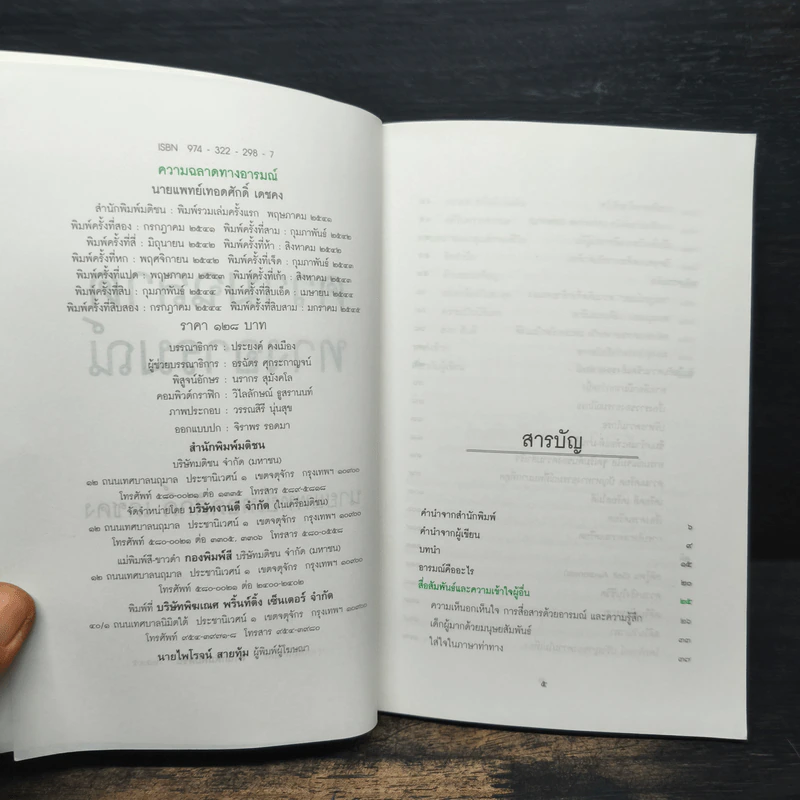 ISBN 974 - 322 - 298 - 7
ความฉลาดทางอารมณ์
นายแพทย์เทอดศักดิ์ เดชคง
สำนักพิมพ์มติชน : พิมพ์รวมเล่มครั้งแรก พฤษภาคม ๒๕๔๑
พิมพ์ครั้งที่สอง : กรกฎาคม ๒๕๔๑ พิมพ์ครั้งที่สาม : กุมภาพันธ์ ๒๕๔๒
พิมพ์ครั้งที่สี่ : มิถุนายน ๒๕๔๒ พิมพ์ครั้งที่ห้า : สิงหาคม ๒๕๔๒
พิมพ์ครั้งที่หก : พฤศจิกายน ๒๕๔๒ พิมพ์ครั้งที่เจ็ด : กุมภาพันธ์ ๒๕๔๓
พิมพ์ครั้งที่แปด : พฤษภาคม ๒๕๔๓ พิมพ์ครั้งที่เก้า : สิงหาคม ๒๕๔๓
พิมพ์ครั้งที่สิบ : กุมภาพันธ์ ๒๕๔๔ พิมพ์ครั้งที่สิบเอ็ด : เมษายน ๒๕๔๔
พิมพ์ครั้งที่สิบสอง : กรกฎาคม ๒๕๔๔ พิมพ์ครั้งที่สิบสาม : มกราคม ๒๕๔๕
ราคา ๑๒๘ บาท
บรรณาธิการ : ประยงค์ คงเมือง
ผู้ช่วยบรรณาธิการ : อรฉัตร ศุกระกาญจน์
พิสูจน์อักษร : นรากร สุมังคโล
คอมพิวต์กราฟิก : วิไลลักษณ์ อูสรานนท์
ภาพประกอบ : วรรณสิรี นุ่นสุข
ออกแบบปก : จิราพร รอดมา
สำนักพิมพ์มติชน
บริษัทมติชน จำกัด (มหาชน)
๑๒ ถนนเทศบาลนฤมาล ประชานิเวศน์ ๑ เขตจตุจักร กรุงเทพฯ ๑๐๙๐๐
โทรศัพท์ ๕๘๐-๐๐๒๑ ต่อ ๑๒๓๕ โทรสาร ๕๘๙-๕๘๑๘
จัดจำหน่ายโดย บริษัทงานดี จำกัด (ในเครือมติชน)
๑๒ ถนนเทศบาลนฤมาล ประชานิเวศน์ ๑ เขตจตุจักร กรุงเทพฯ ๑๐๙๐๐
โทรศัพท์ ๕๘๐-๐๐๒๑ ต่อ ๓๓๐๕, ๓๓๐๖ โทรสาร ๕๘๐-๐๕๕๘
แม่พิมพ์สี-ขาวดำ กองพิมพ์สี บริษัทมติชน จำกัด (มหาชน)
๑๒ ถนนเทศบาลนฤมาล ประชานิเวศน์ ๑ เขตจตุจักร กรุงเทพฯ ๑๐๙๐๐
โทรศัพท์ ๕๘๐-๐๐๒๑ ต่อ ๒๔๐๐-๒๔๐๒
พิมพ์ที่ บริษัทพิฆเณศ พริ้นท์ติ้ง เซ็นเตอร์ จำกัด
๔๐/๑ ถนนเทศบาลนิมิตใต้ ประชานิเวศน์ ๑ เขตจตุจักร กรุงเทพฯ ๑๐๙๐๐
โทรศัพท์ ๙๕๔-๓๙๓๑-๘ โทรสาร ๙๕๔-๓๙๘๐
นายไพโรจน์ สายทุ้ม ผู้พิมพ์ผู้โฆษณา
สารบัญ
คำนำจากสำนักพิมพ์ ๖
คำนำจากผู้เขียน ๙
บทนำ ๑๕
อารมณ์คืออะไร ๒๐
สื่อสัมพันธ์และความเข้าใจผู้อื่น ๒๕
ความเห็นอกเห็นใจ การสื่อสารด้วยอารมณ์ และความรู้สึก ๒๖
เด็กผู้มากด้วยมนุษยสัมพันธ์ ๓๑
ใส่ใจในภาษาท่าทาง ๓๗
๕